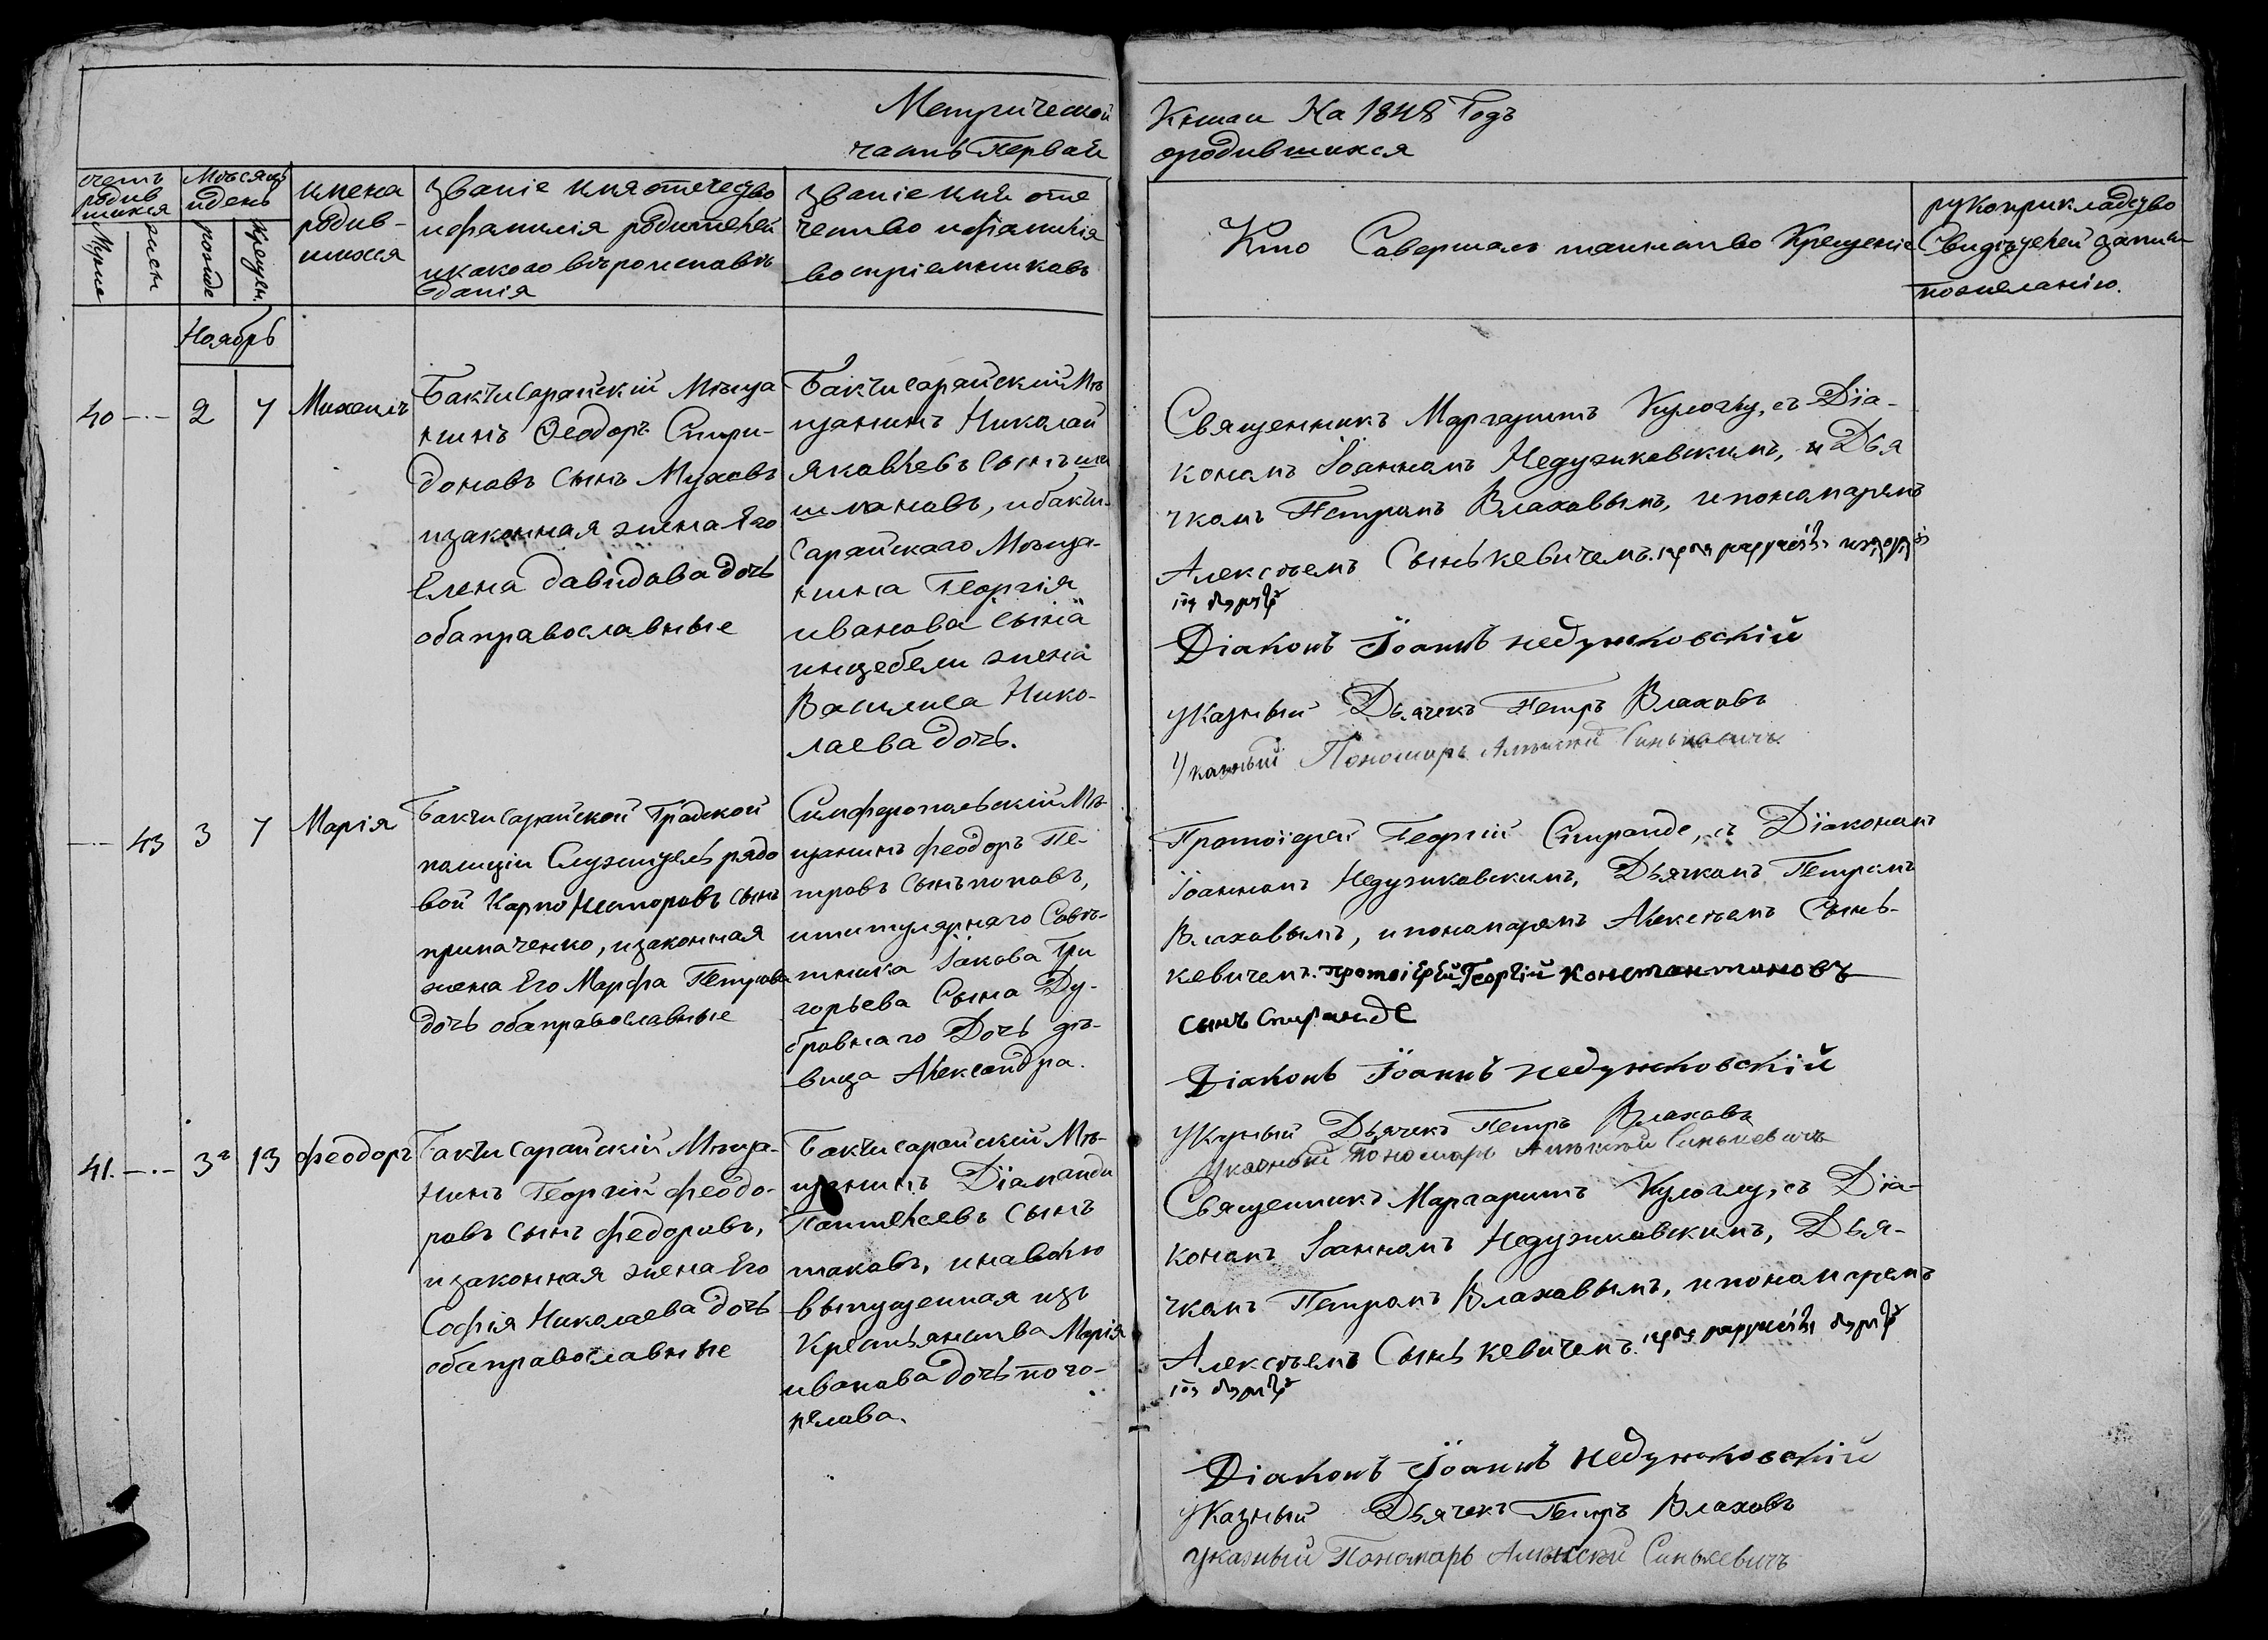 Метрической
часть Первая
Книги На 1848 Годъ
ородившихся
счетъ
родив
шихся
Муже
жен
Мѣсяцъ
идень
рожде
Крещен.
имена
родив-
шихся
званіе имя отечество
ифамилія родителей
икакого вѣроисповѣ
данія
званіе имя оте
чество ифамилія
воспріемниковъ
Кто Савершалъ таинство Крещенія
рукоприкладство
Свидѣтелей записи
пожеланію.
Ноябрь
40 — · — 2 7 Михаилъ
Бакчисарайскій Мѣща
нинъ Ѳеодоръ Спири-
доновъ сынъ Муховъ
изаконная жена Его
Елена давидова дочь
обаправославные
Бакчисарайскій Мѣ
щанинъ Николай
Яковлевъ сынъ ши
шмановъ, ибакчи-
сарайскаго Мѣща-
нина Георгія
иванова сына
инжебели жена
Василиса Нико-
лаева дочь.
Священникъ Маргаритъ Кулоглу, съ Діа-
кономъ Іоанномъ Недужиковскимъ, и Дья
чкомъ Петромъ Влаховымъ, ипономаремъ
Алексѣемъ Сынькевичемъ.
Діаконъ Іоаннъ недужковскій
Указный Дьячекъ Петръ Влаховъ
Указный Пономарь Алексѣй Синькевичъ
— · — 43 3 7 Марія
Бакчисарайской Градской
полиціи Служитель рядо
вой Карпо Несторовъ сынъ
припаченко, изаконная
жена Его Марфа Петрова
дочь обаправославные
Симферопольскій Мѣ-
щанинъ феодоръ Пе-
тровъ сынъ поповъ,
ититулярнаго Совѣ-
тника Іакова Гри
горьева Сына Ду-
бровнаго Дочь дѣ-
вица Александра.
Протоіерей Георгій Спиранде, съ Діакономъ
Іоанномъ Недужиковскимъ, Дьячкомъ Петромъ
Влаховымъ, ипономаремъ Алексѣемъ Сынь-
кевичемъ. протоіерей Георгій константиновъ
сынъ Спиранде
Діаконъ Іоаннъ недужковскій
Указный Дьячекъ Петръ Влаховъ
Указный Пономарь Алексѣй Синькевичъ
41. — · — 3 13 феодоръ
Бакчисарайскій Мѣща-
нинъ Георгій феодо-
ровъ сынъ федоровъ,
изаконная жена Его
Софія Николаева дочь
обаправославные
Бакчисарайскій Мѣ-
щанинъ Діаманди
Пантелеевъ сынъ
таковъ, инаволю
выпущенная изъ
Крестьянства Марія
иванова дочь пого-
релова.
Священникъ Маргаритъ Кулоглу, съ Діа-
кономъ Іоанномъ Недужиковскимъ, Дья-
чкомъ Петромъ Влаховымъ, ипономаремъ
Алексѣемъ Сынькевичемъ.
Діаконъ Іоаннъ недужковскій
Указный Дьячекъ Петръ Влаховъ
указный Пономарь Алексѣй Синькевичъ